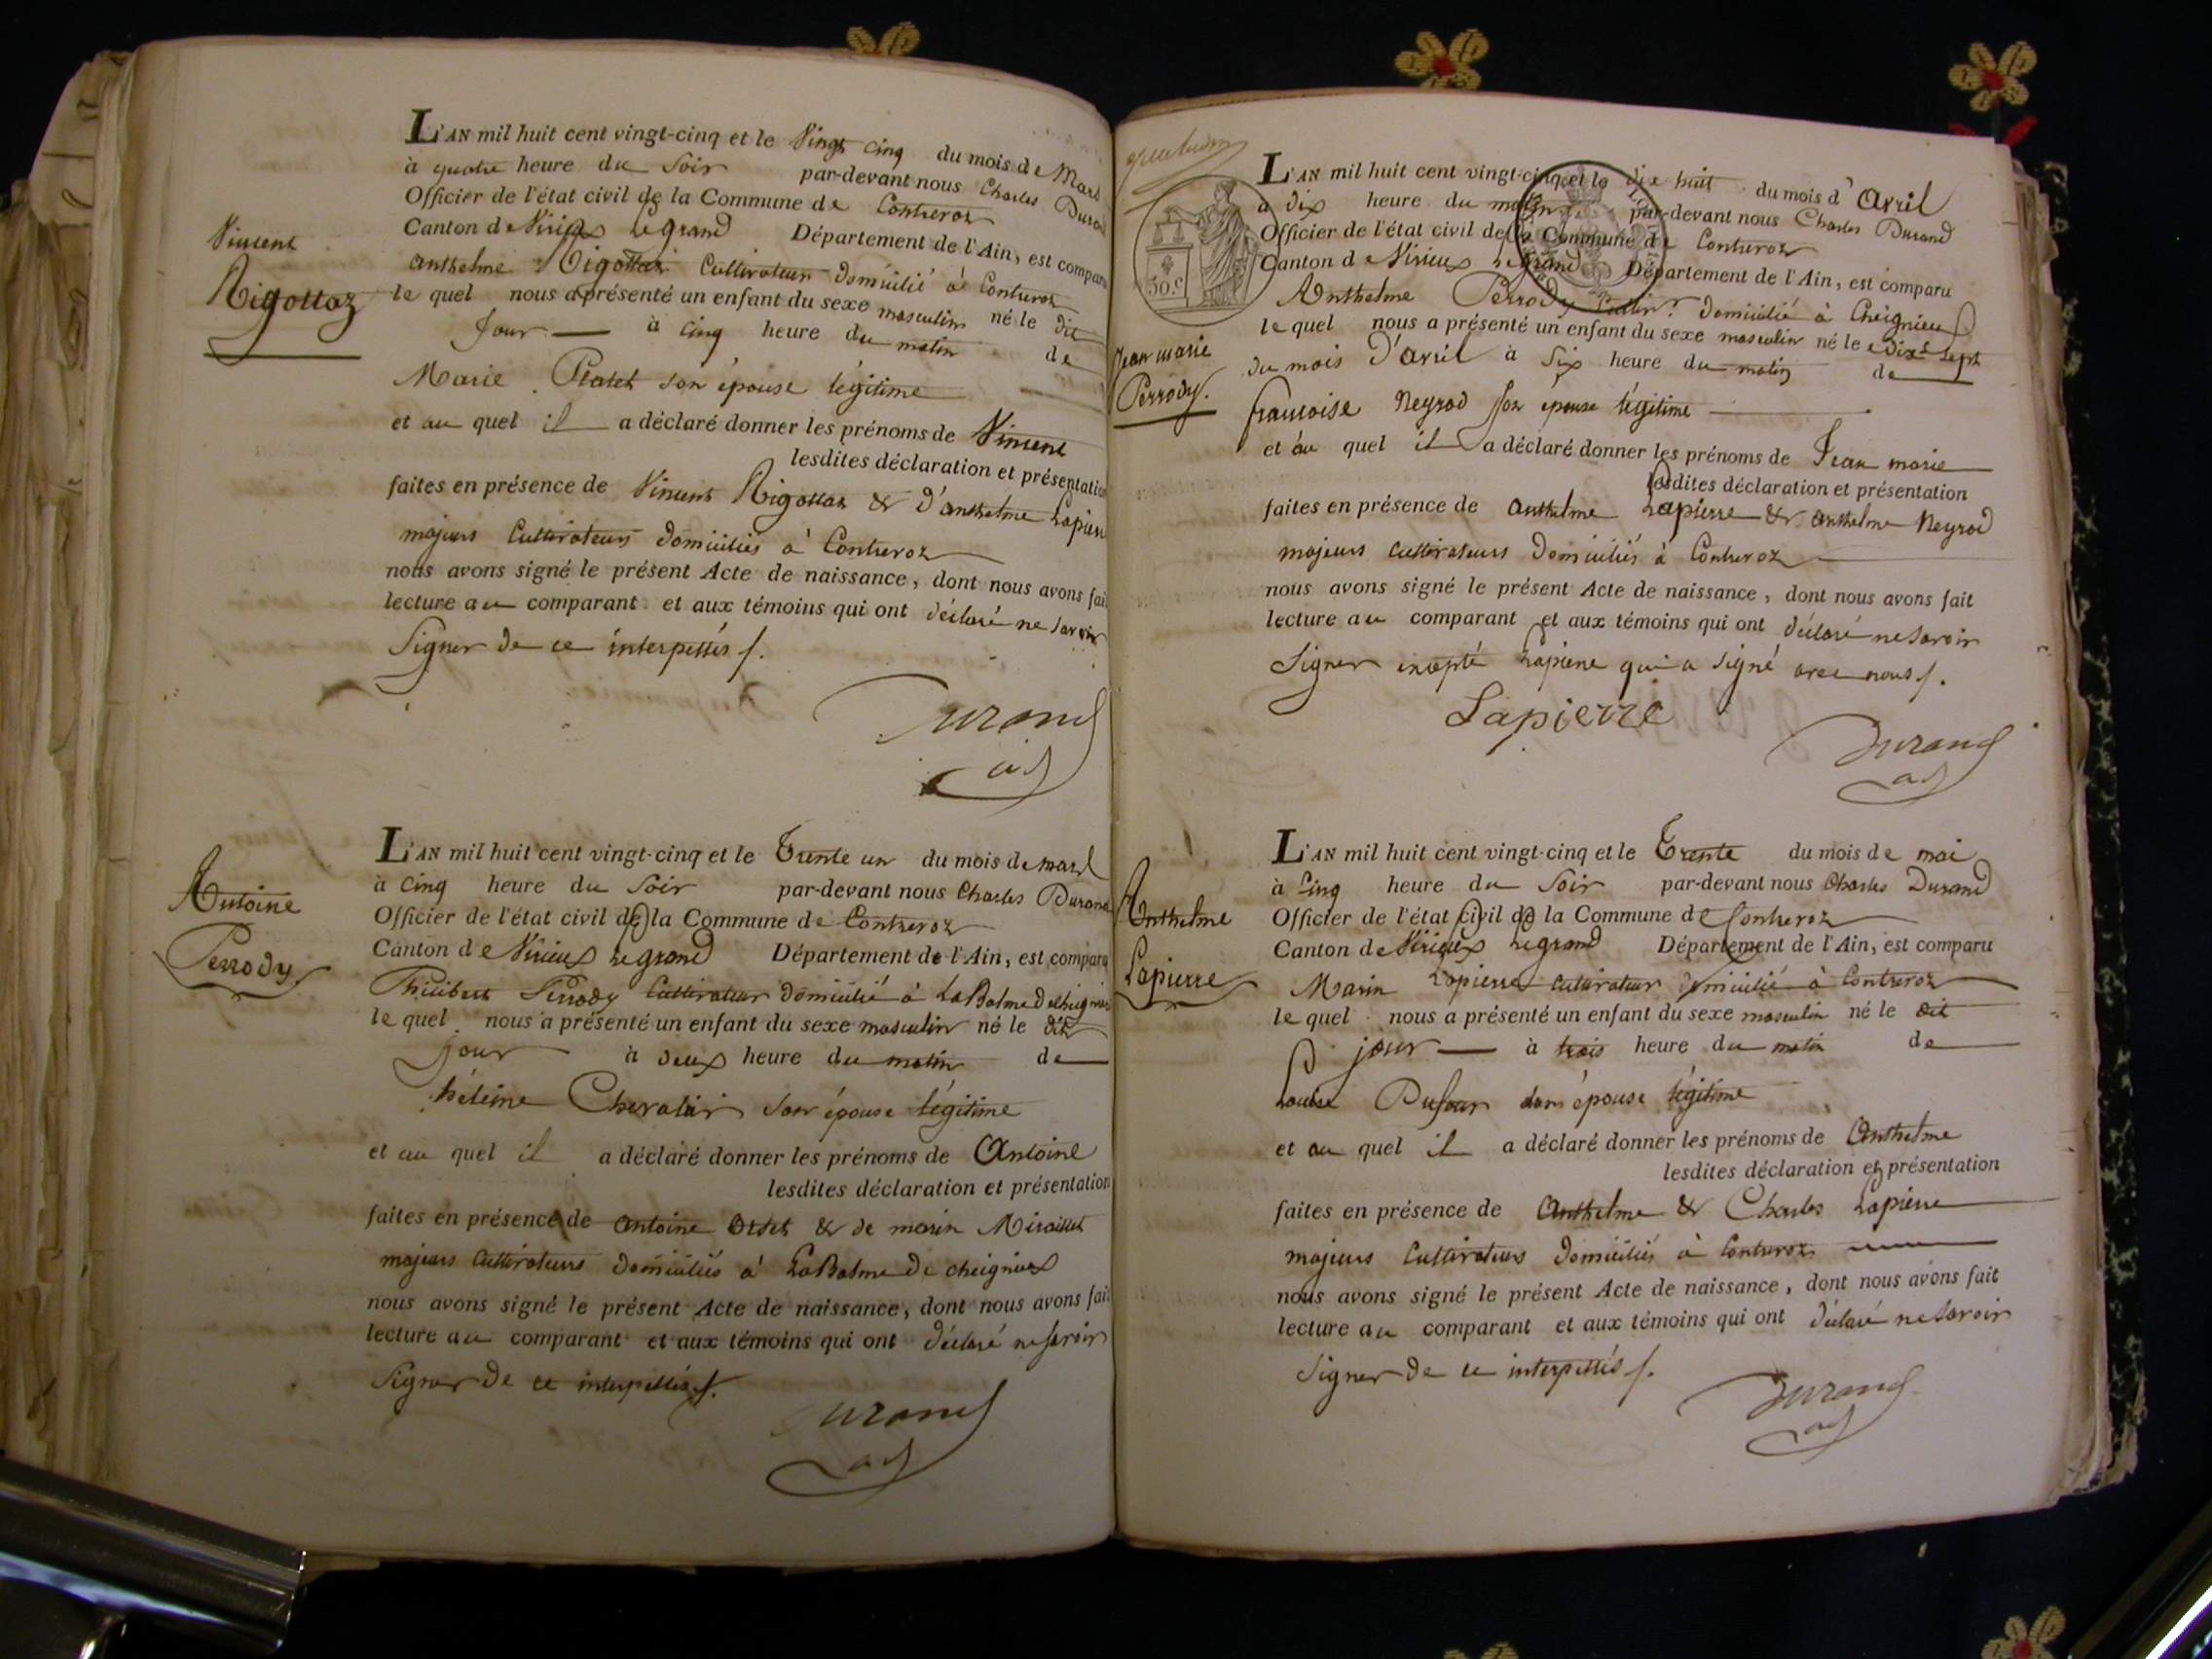 Vincent
Rigottaz
L'AN mil huit cent vingt-cinq et le Vingt cinq du mois de Mars
à quatre heure du Soir par-devant nous Charles Durand
Officier de l'état civil de la Commune de Contrevoz
Canton de Virieux Le grand Département de l'Ain, est comparu
anthelme Rigottaz Cultivateur domicilié à Contrevoz
le quel nous a présenté un enfant du sexe masculin né le dit
Jour à cinq heure du matin de
Marie Platet son épouse légitime
et au quel il a déclaré donner les prénoms de Vincent
lesdites déclaration et présentation
faites en présence de Vincent Rigottaz & d'anthelme Lapierre
majeurs Cultivateurs domiciliés à Contrevoz
nous avons signé le présent Acte de naissance, dont nous avons fait
lecture au comparant et aux témoins qui ont déclaré ne savoir
Signer de ce interpellés /.
Durand
Antoine
Perrody
L'AN mil huit cent vingt-cinq et le Trente un du mois de mars
à cinq heure du Soir par-devant nous Charles Durand
Officier de l'état civil de la Commune de Contrevoz
Canton de Virieux Le grand Département de l'Ain, est comparu
Philibert Perrody Cultivateur domicilié à La Balme de cheignieux
le quel nous a présenté un enfant du sexe masculin né le dit
jour à deux heure du matin de
héleine Chevalier son épouse légitime
et au quel il a déclaré donner les prénoms de Antoine
lesdites déclaration et présentation
faites en présence de antoine & de marin Miraillet
majeurs Cultivateurs domiciliés à La Balme de cheignieux
nous avons signé le présent Acte de naissance, dont nous avons fait
lecture au comparant et aux témoins qui ont déclaré ne savoir
Signer de ce interpellés /.
Durand
30.c
Jean marie
Perrody.
L'AN mil huit cent vingt-cinq et le dix huit du mois d'Avril
à dix heure du matin par-devant nous Charles Durand
Officier de l'état civil de la Commune de Contrevoz
Canton de Virieux Le grand Département de l'Ain, est comparu
Anthelme Perrody Cultiv.r domicilié à Cheignieux
le quel nous a présenté un enfant du sexe masculin né le dix sept
du mois d'avril à Six heure du matin de
francoise Neyrod son épouse légitime
et au quel il a déclaré donner les prénoms de Jean marie
lesdites déclaration et présentation
faites en présence de anthelme Lapierre & anthelme Neyrod
majeurs cultivateurs domiciliés à Contrevoz
nous avons signé le présent Acte de naissance, dont nous avons fait
lecture au comparant et aux témoins qui ont déclaré ne savoir
Signer excepté Lapierre qui a signé avec nous /.
Lapierre
Durand
Anthelme
Lapierre
L'AN mil huit cent vingt-cinq et le Trente du mois de mai
à cinq heure du Soir par-devant nous Charles Durand
Officier de l'état civil de la Commune de Contrevoz
Canton de Virieux Le grand Département de l'Ain, est comparu
Marin Lapierre cultivateur domicilié à Contrevoz
le quel nous a présenté un enfant du sexe masculin né le dit
jour à trois heure du matin de
Louise Dufour son épouse légitime
et au quel il a déclaré donner les prénoms de Anthelme
lesdites déclaration et présentation
faites en présence de Anthelme & Charles Lapierre
majeurs Cultivateurs domiciliés à Contrevoz
nous avons signé le présent Acte de naissance, dont nous avons fait
lecture au comparant et aux témoins qui ont déclaré ne savoir
Signer de ce interpellés /.
Durand